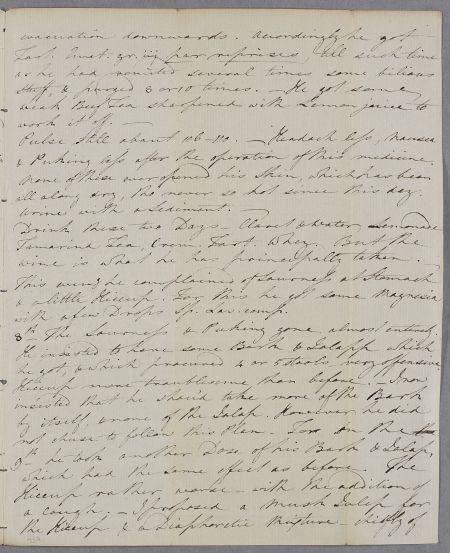 evacuation downwards. Accordingly he got
Tart. Emet. gr. iij par reprises, till such time
as he had vomited several times some bilious
Stuff, & purged 8 or 10 times. — He got some
weak Beef Tea sharpened with Lemon juice to
work it off. —
Pulse still about 116-110. — Headach less, nausea
& Puking less after the operation of this medicine.
None of these ever opened his Skin, which has been
all along dry, tho never so hot since this day.
Urine with a Sediment. —
Drink these two Days Claret & water, Lemonade
Tamarind Tea, Crem. Tart. Whey. But the
wine is what he has principally taken.
This evening he complained of Sourness at Stomach
& a little Hiccup. For this he got some Magnesia
with a few Drops Sp. Lav. comp.
8th The Sourness & Puking gone almost entirely.
He insisted to have some Bark & Jalapp which
he got, & which procured 4 or 5 stools, very offensive.
Hiccup more troublesome than before. — I now
insisted that he should take more of the Bark
by itself, & none of the Jalap. However he did
not chuse to follow this Plan. For on the
9th he took another Dose of his Bark & Jalap,
which had the same effect as before. The
Hiccup rather worse — with the addition of
a cough. — I proposed a Musk Julep for
the Hiccup & a Diaphoretic Mixture chiefly of